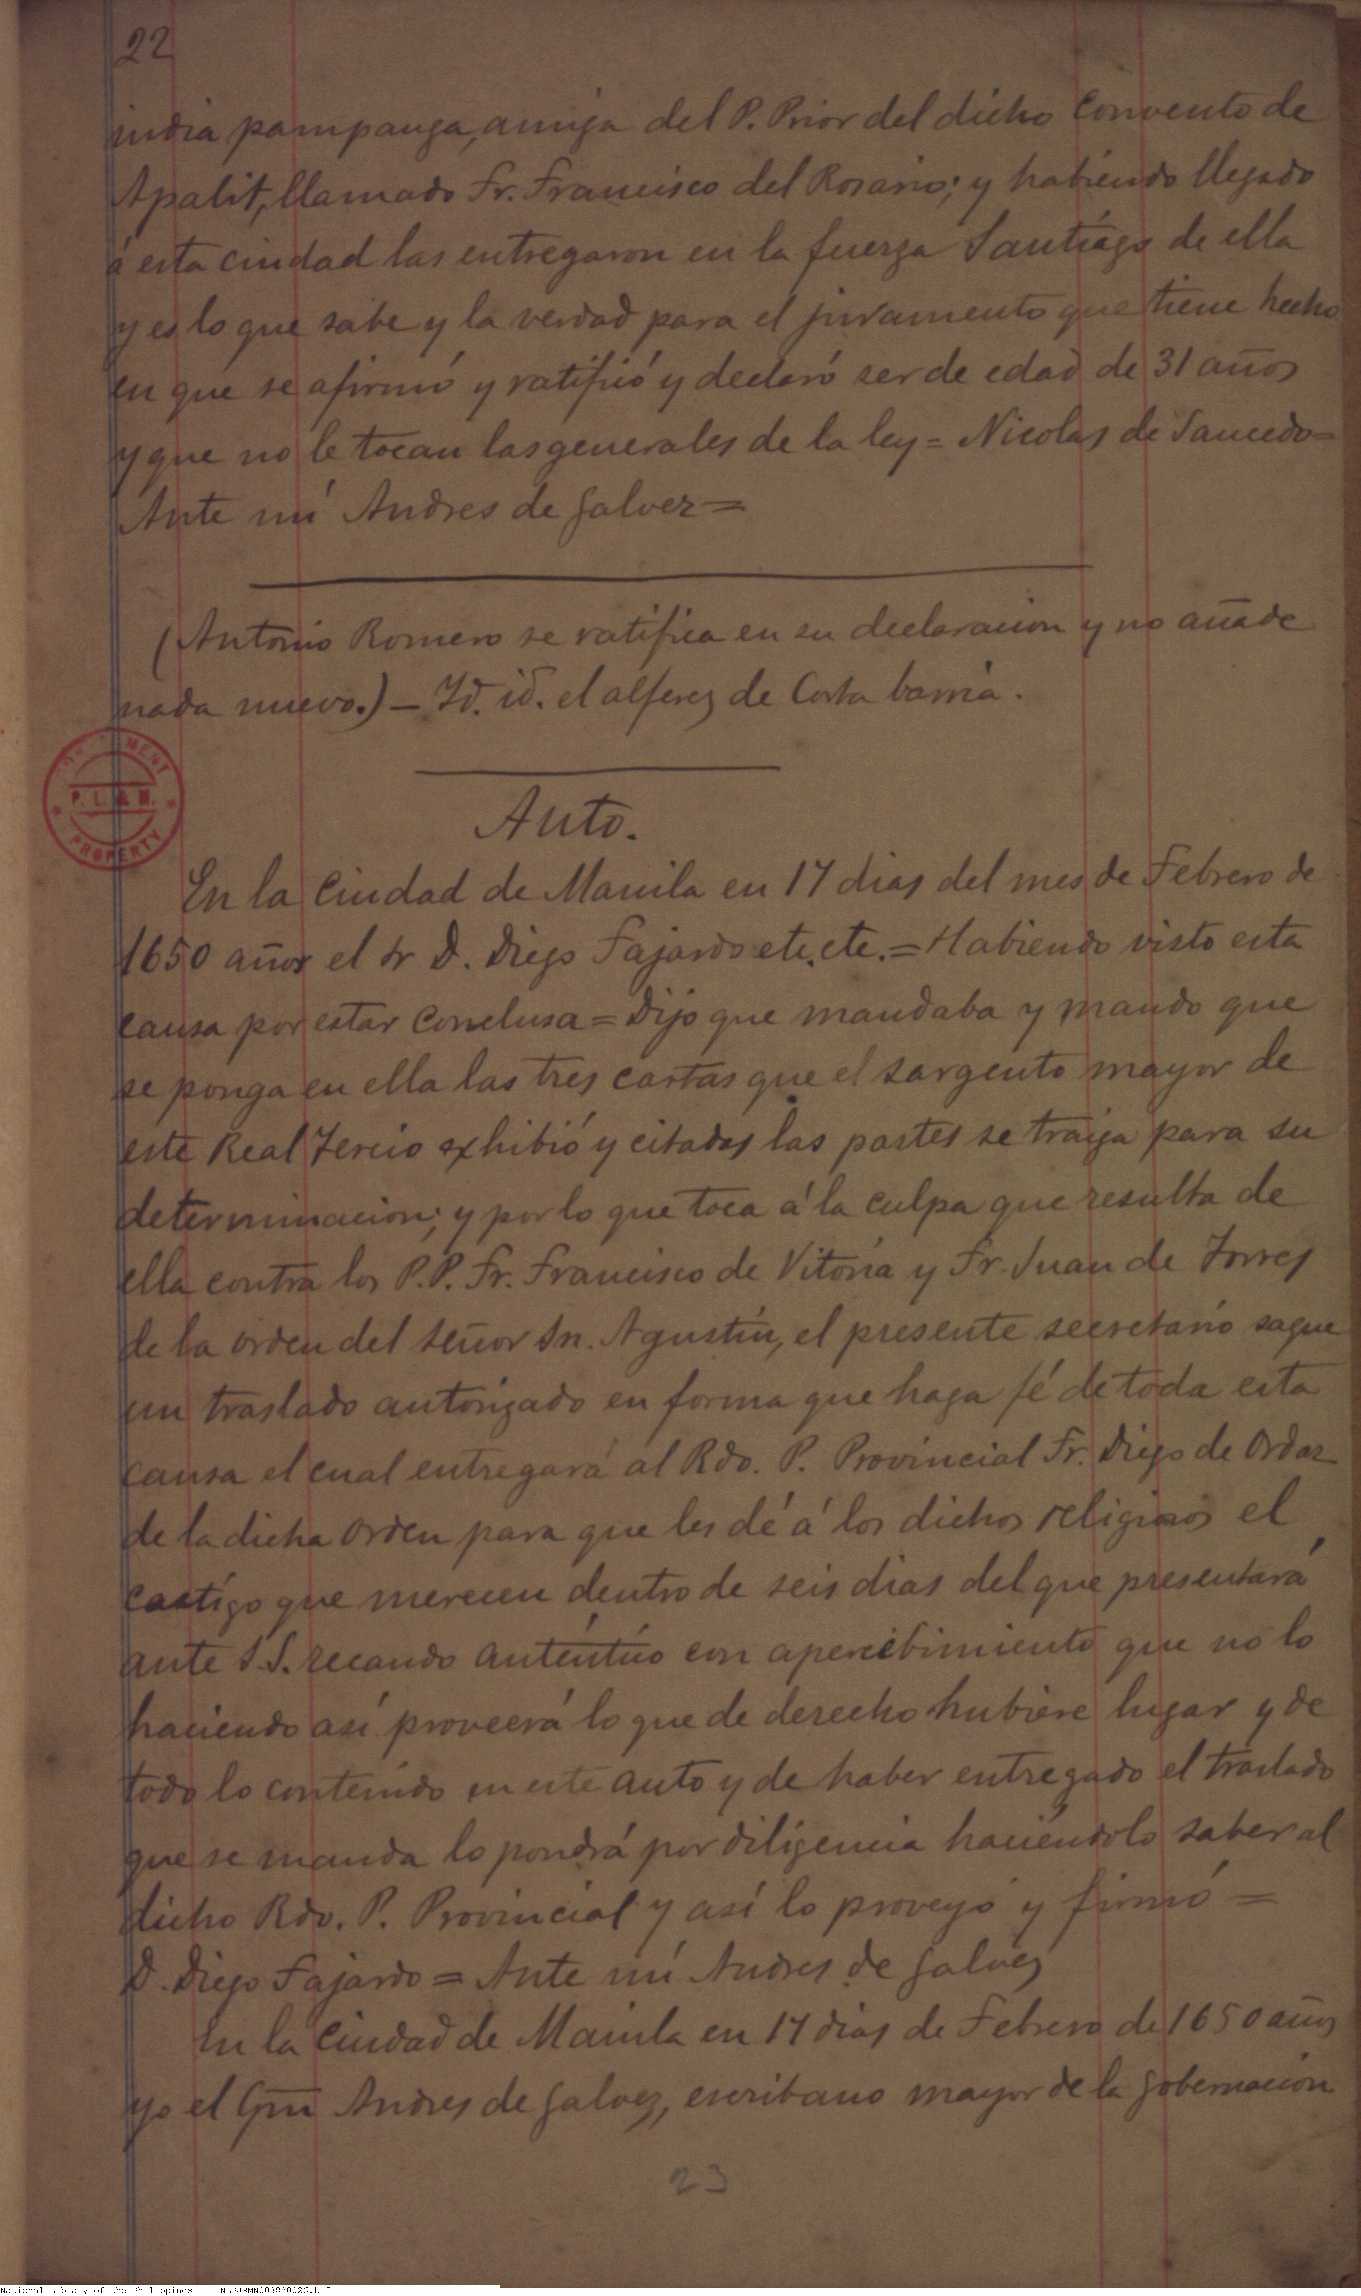 22
india pampanga, amiga del P. Prior del dicho convento de
Apalit, llamado Fr. Francisco del Rosario; y habiendo llegado
á esta ciudad las entregaron en la fuerza Santiago de ella
y es lo que sabe y la verdad para el juramento que tiene hecho
en que se afirmó y ratificó y declaró ser de edad de 31 años
y que no le tocan las generales de la ley = Nicolas de Saucedo =
Ante mí Andres de Galvez =
(Antonio Romero se ratifica en su declaracion y no añade
nada nuevo.) — Id. id. el alferez de Costa barria.
Auto.
En la Ciudad de Manila en 17 dias del mes de Febrero de
1650 años el Sr D. Diego Fajardo etc. etc. = Habiendo visto esta
causa por estar conclusa = Dijo que mandaba y mando que
se ponga en ella las tres cartas que el sargento mayor de
este Real Tercio exhibió y citadas las partes se traiga para su
determinacion; y por lo que toca á la culpa que resulta de
ella contra los P.P. Fr. Francisco de Vitoria y Fr. Juan de Torres
de la orden del señor Sn. Agustín, el presente secretario saque
un traslado autorizado en forma que haga fé de toda esta
causa el cual entregará al Rdo. P. Provincial Fr. Diego de Ordaz
de la dicha Orden para que les dé á los dichos religiosos el
castigo que merecen dentro de seis dias del que presentará
ante S.S. recaudo auténtico con apercibimiento que no lo
haciendo así proveerá lo que de derecho hubiere lugar y de
todo lo contenido en este auto y de haber entregado el traslado
que se manda lo pondrá por diligencia haciéndolo saber al
dicho Rdo. P. Provincial y así lo proveyó y firmó =
D. Diego Fajardo = Ante mí Andres de Galvez
En la Ciudad de Manila en 17 dias de Febrero de 1650 años
yo el Gm Andres de Galvez, escribano mayor de la gobernacion
23
P. L. & M.
PROPERTY